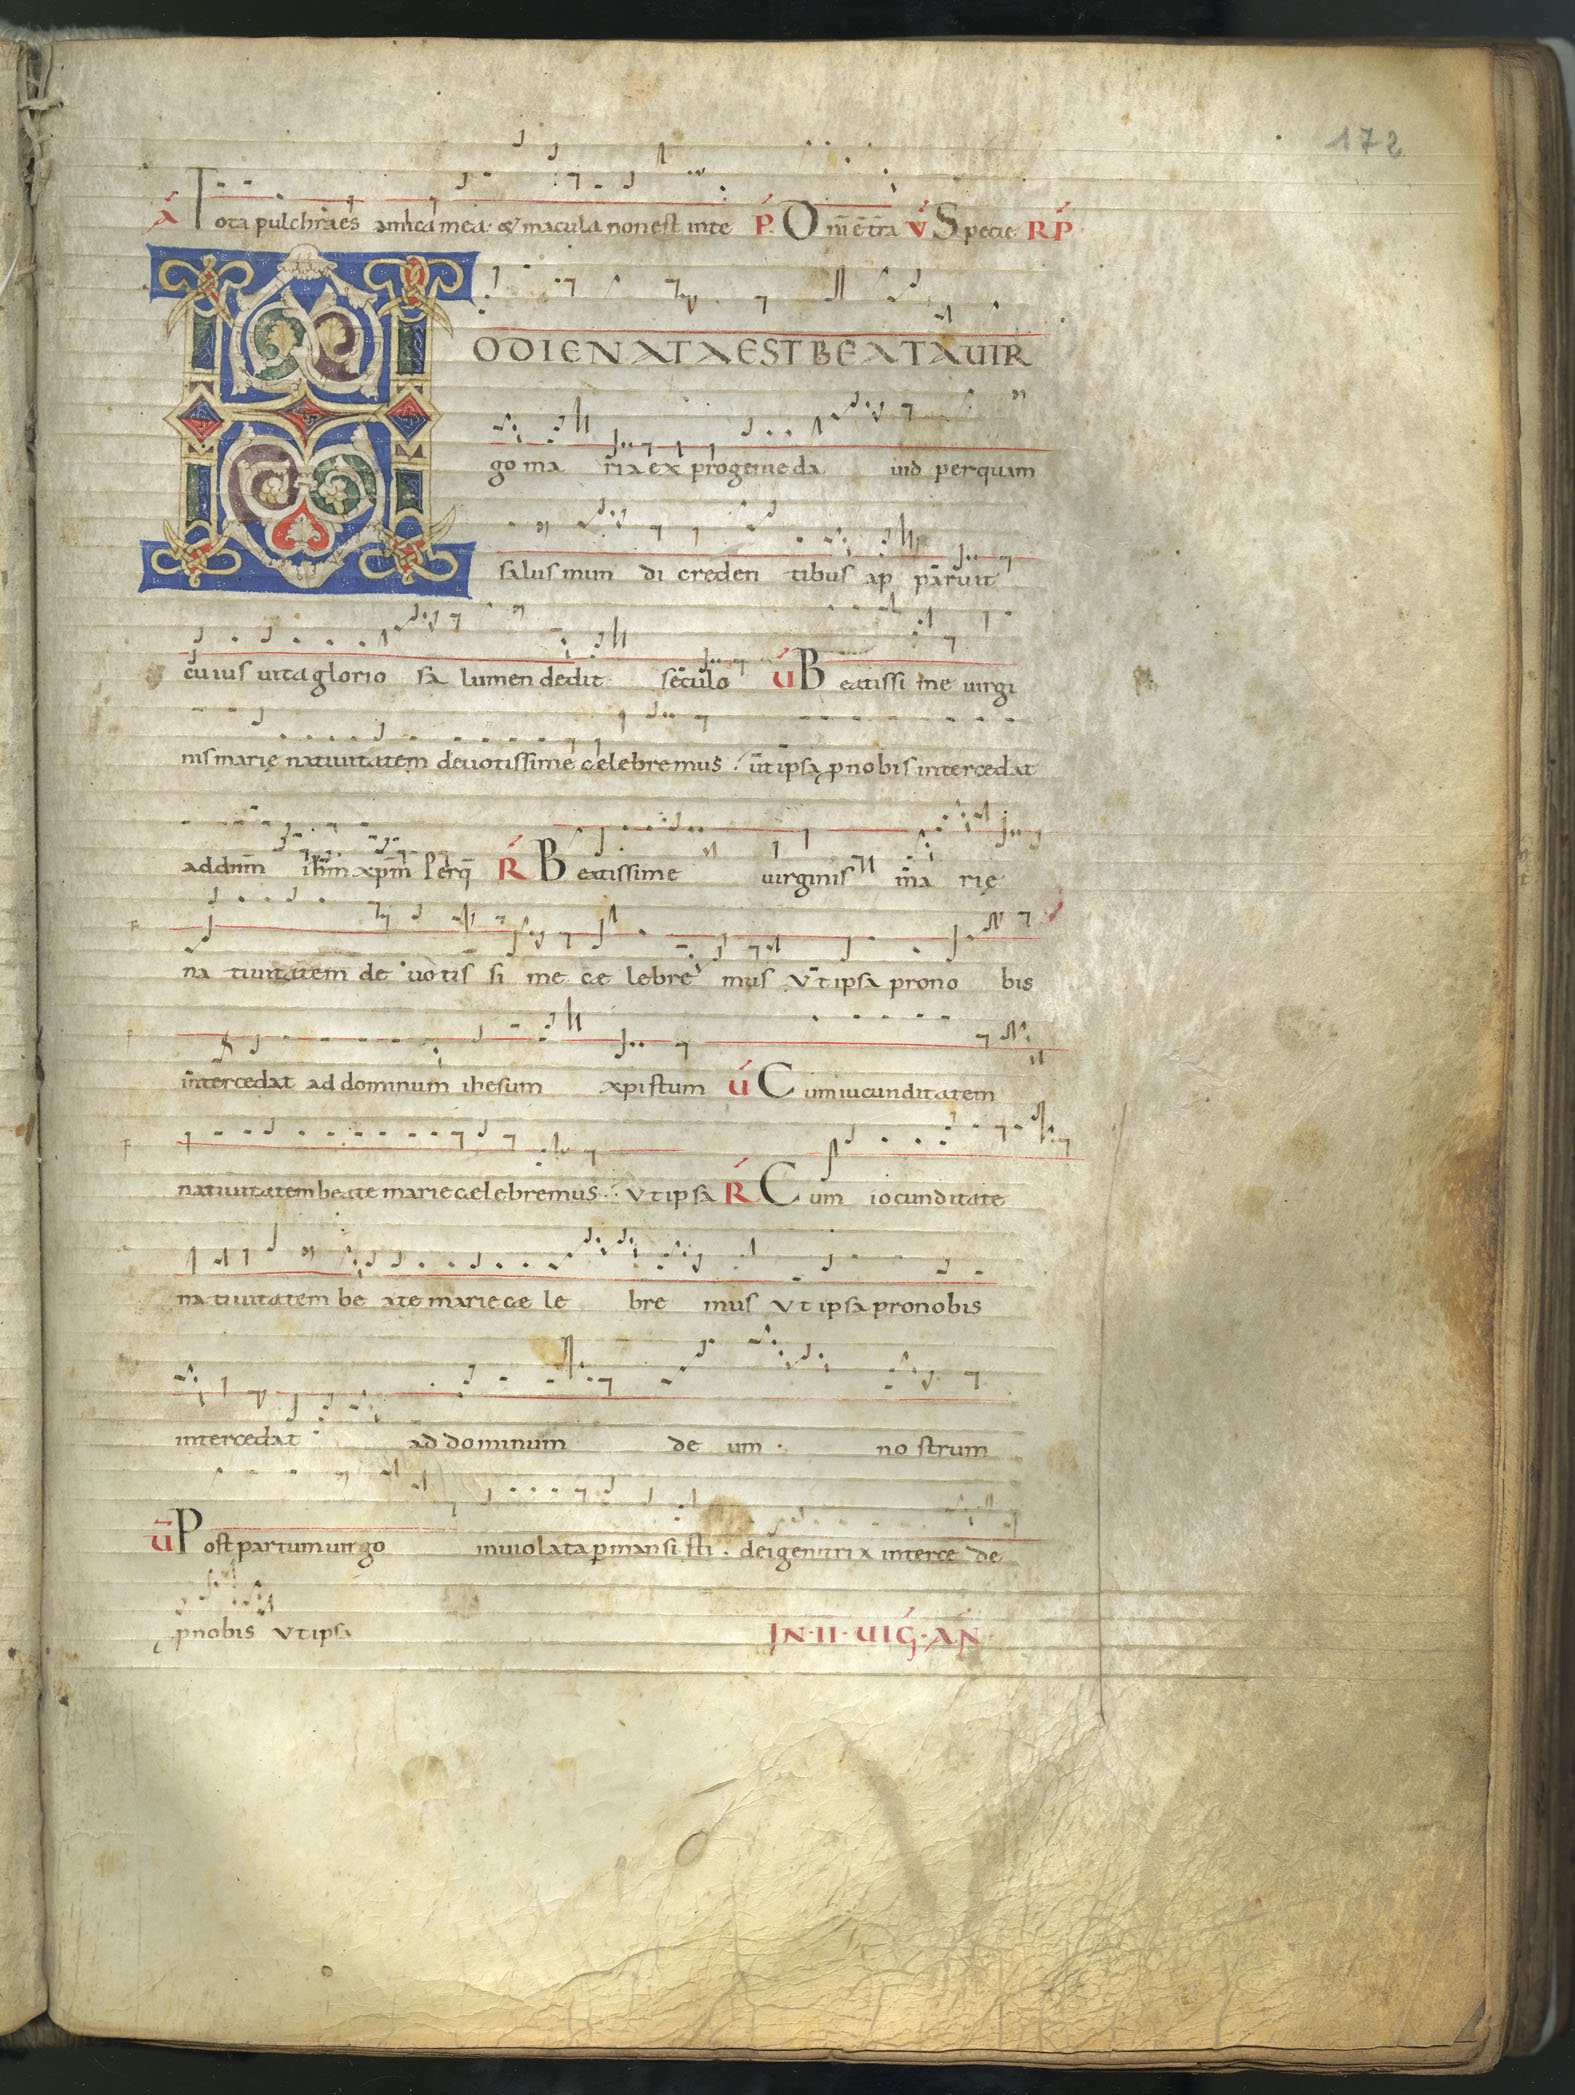 172
A Tota pulchra es amica mea · & macula non est in te P. O niē tr̄a V Specie RP
HODIE NATA EST BEATA VIR
go ma ria ex progenie da uid per quam
salus mun di creden tibus ap paruit
cuius uita glorio sa lumen dedit seculo U Beatissi me uirgi
nis marię natiuitatem deuotissime celebremus · ut ipsa ꝓ nobis intercedat
ad dn̄m ih̄m xp̄m Perq̄ R Beatissime uirginis ma rię
na tiuitatem de uotis si me ce lebre mus Vt ipsa pro no bis
intercedat ad dominum ihesum xpistum U Cum iucunditatem
natiuitatem beate marie celebremus · Vt ipsa R Cum iocunditate
na tiuitatem be ate marie ce le bre mus Vt ipsa pro nobis
intercedat ad dominum de um · no strum
U Post partum uirgo inuiolata ꝑmansi sti · dei genitrix interce de
ꝓ nobis Vt ipsa JN · II · UIG · AN